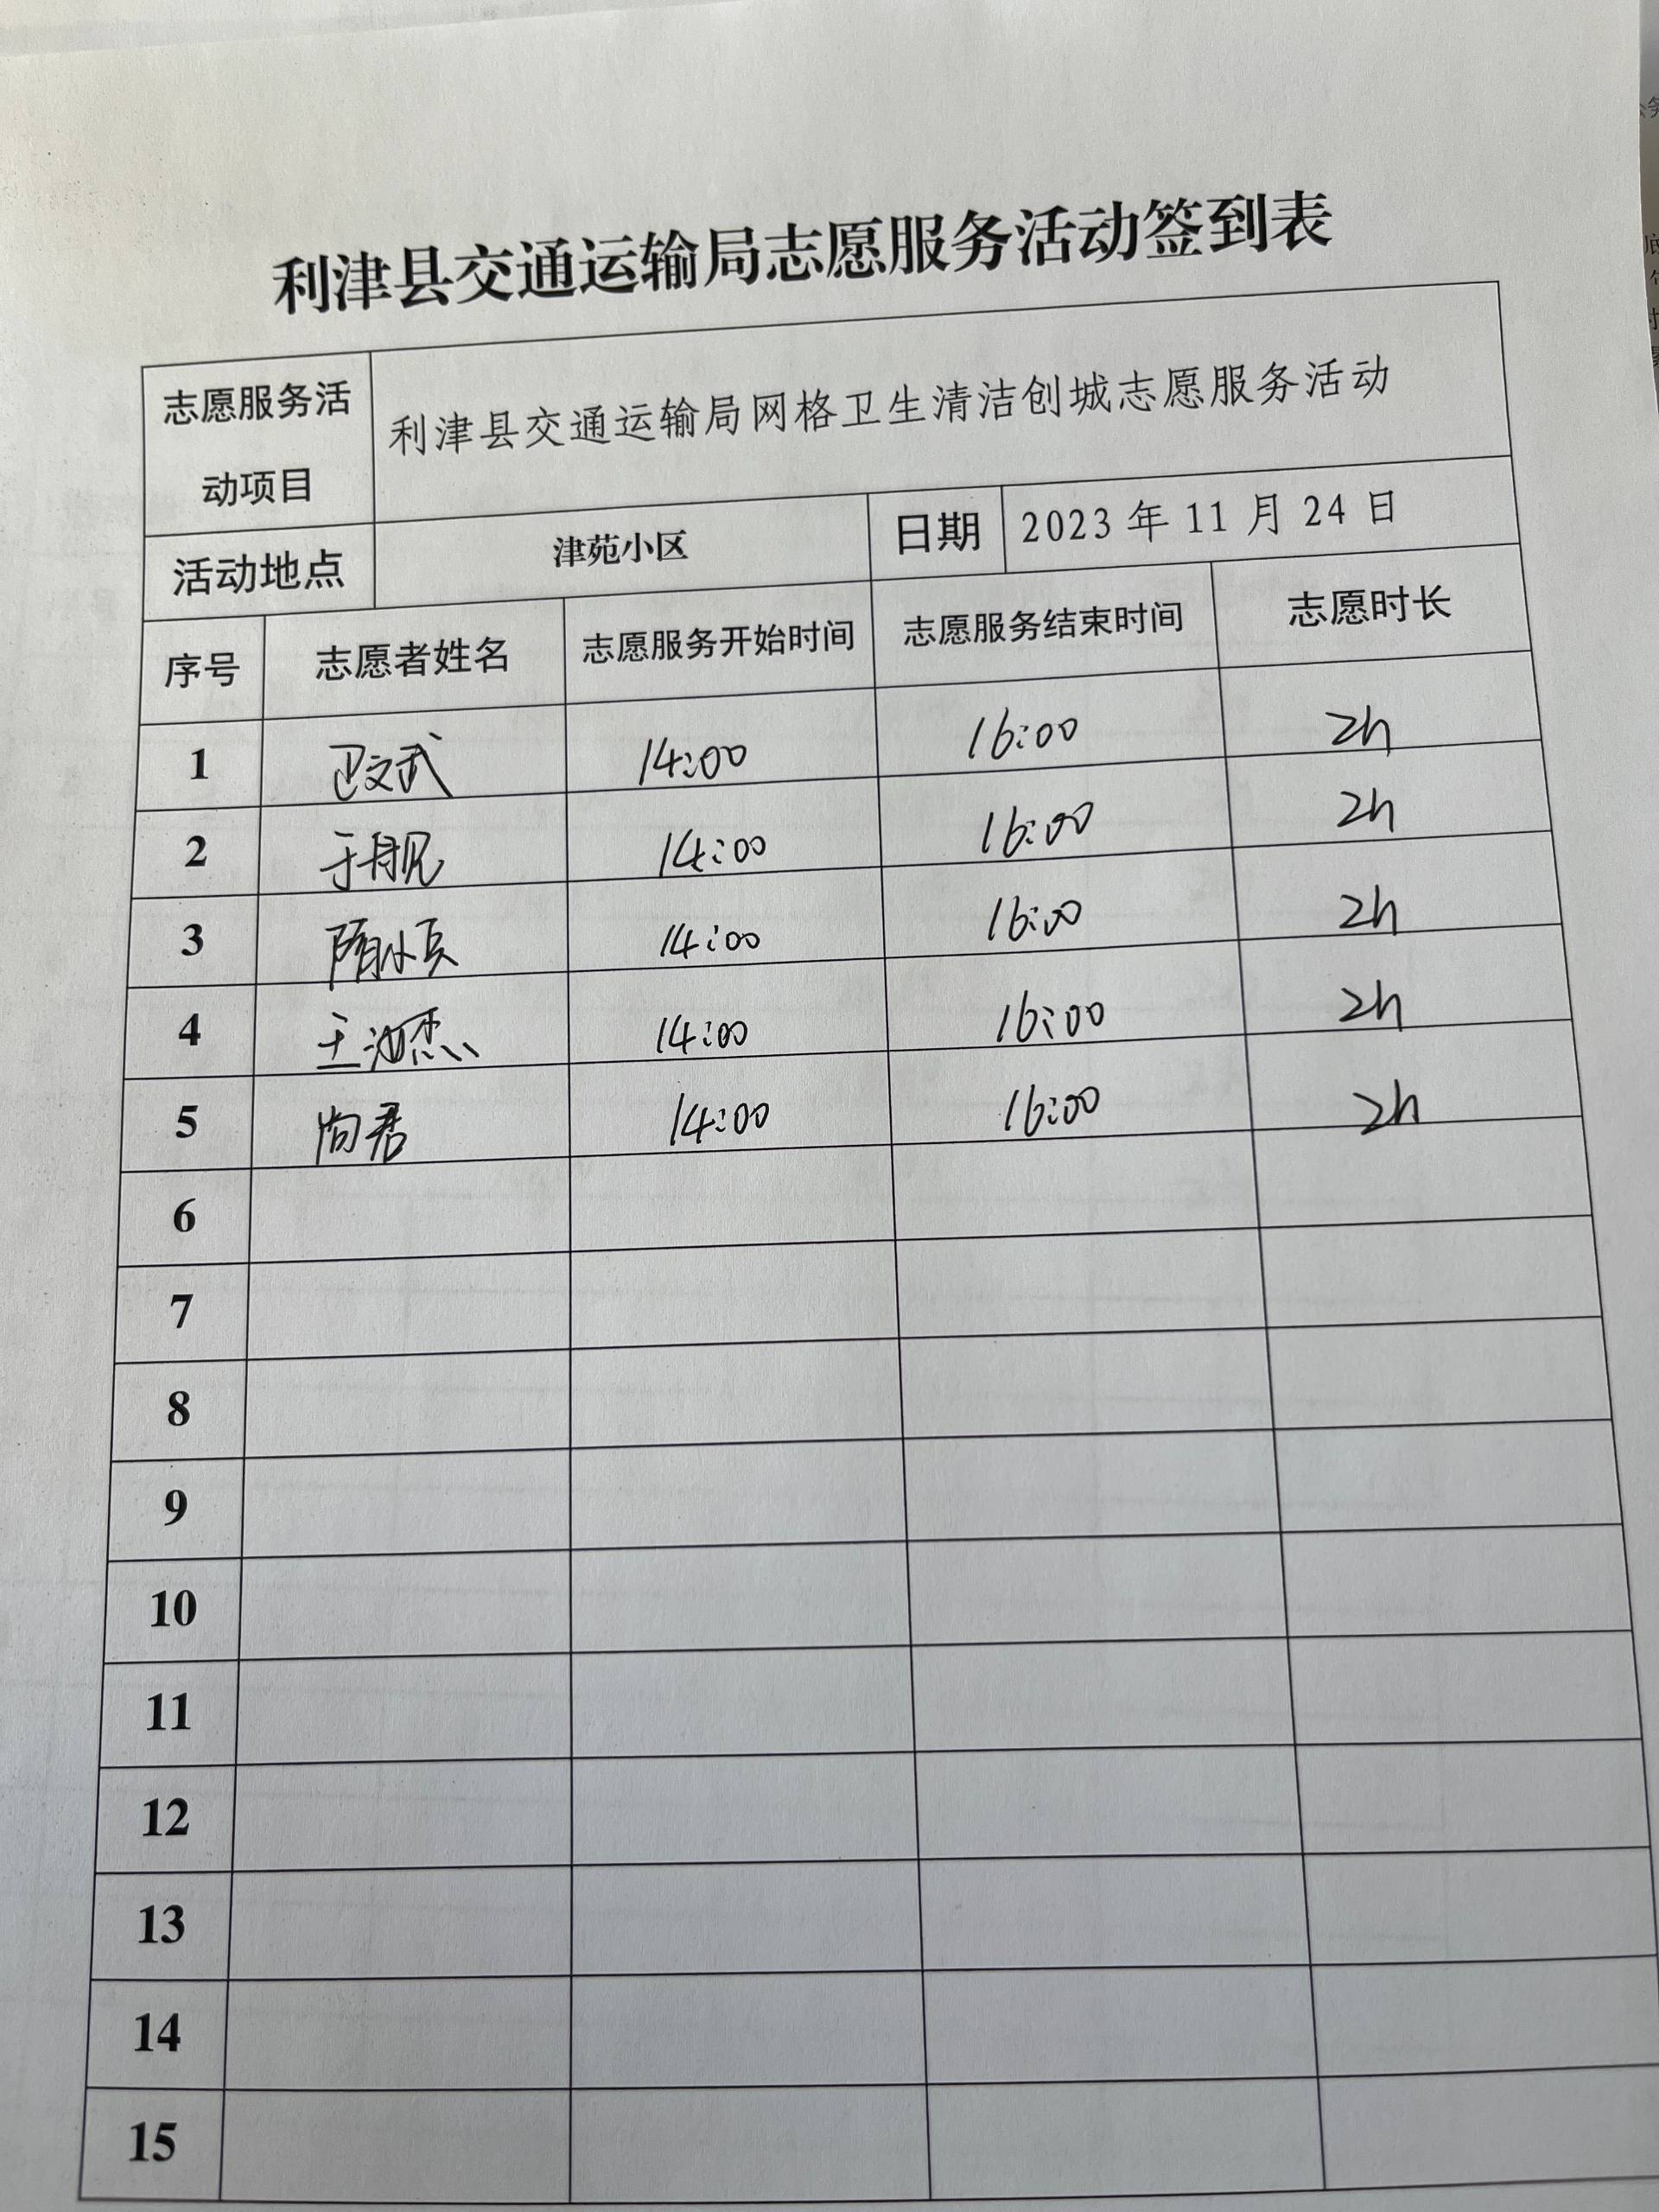 利津县交通运输局志愿服务活动签到表
志愿服务活动项目 利津县交通运输局网格卫生清洁创城志愿服务活动
活动地点 津苑小区 日期 2023年11月24日
序号 志愿者姓名 志愿服务开始时间 志愿服务结束时间 志愿时长
1 卫文武 14:00 16:00 2h
2 14:00 16:00 2h
3 14:00 16:00 2h
4 14:00 16:00 2h
5 尚君 14:00 16:00 2h
6
7
8
9
10
11
12
13
14
15